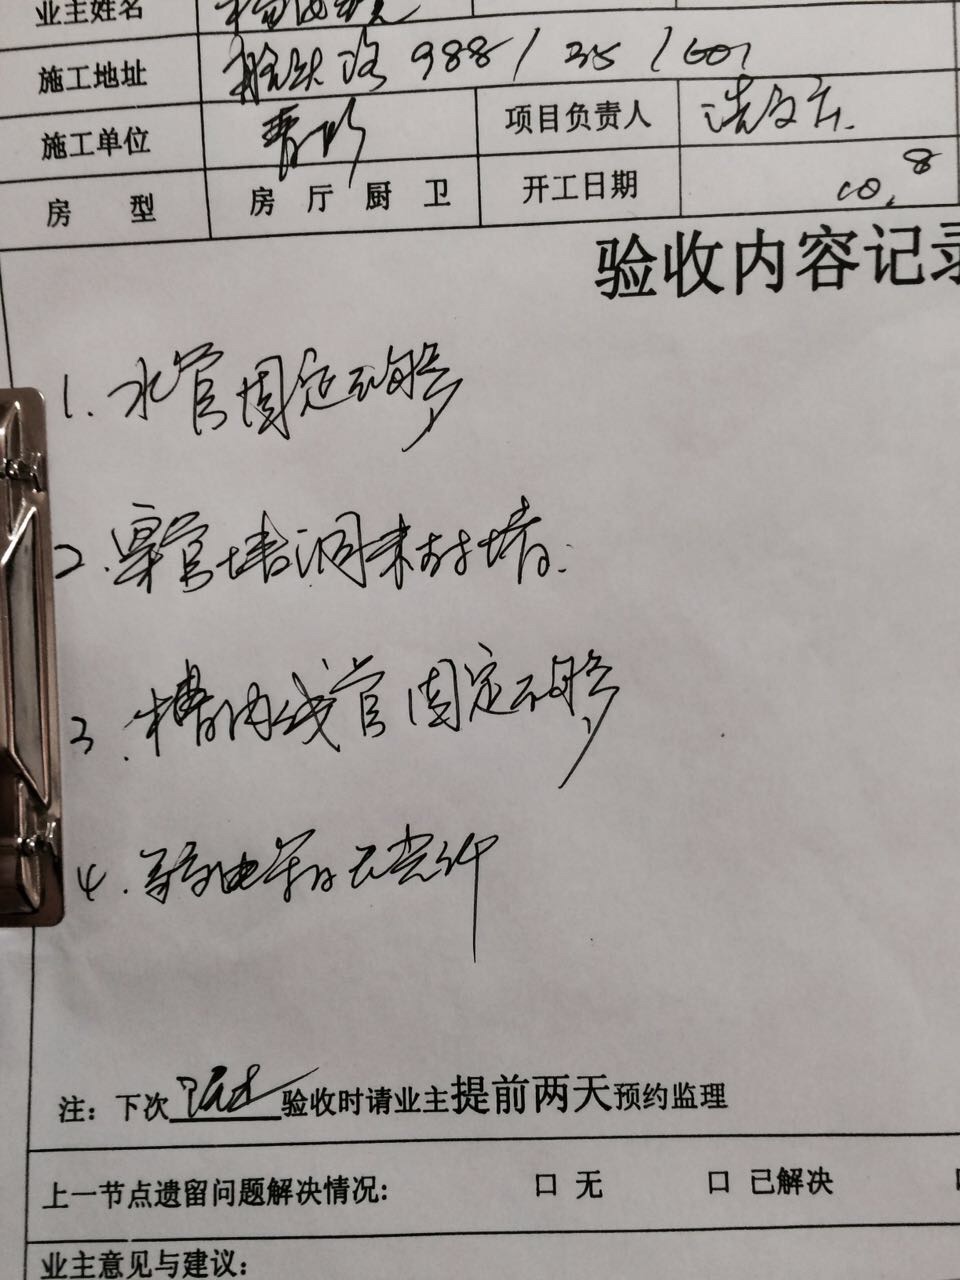 业主姓名
施工地址 路 988/35/601
施工单位 项目负责人
房 型 房 厅 厨 卫 开工日期 10.8
验收内容记录
1. 水管固定不够
2. 穿管墙洞未封堵.
3. 槽内线管固定不够
4.
注: 下次 验收时请业主提前两天预约监理
上一节点遗留问题解决情况: 口 无 口 已解决
业主意见与建议: